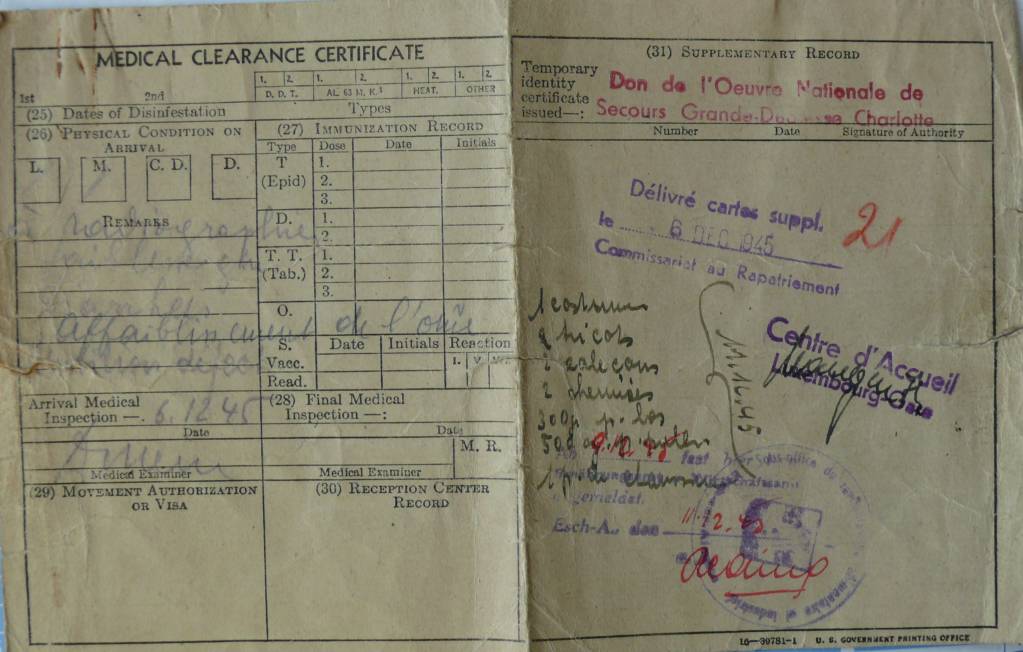 MEDICAL CLEARANCE CERTIFICATE
1st 2nd
1. 2. 1. 2. 1. 2. 1. 2.
D. D. T. AL 63 M. K.³ HEAT. OTHER
(25) Dates of Disinfestation Types
(26) Physical Condition on Arrival
L. M. C. D. D.
Remarks
à radiographie
affaiblissement de l'ouïe
(27) Immunization Record
Type Dose Date Initials
T (Epid) 1.
2.
3.
D. 1.
2.
T. T. (Tab.) 1.
2.
3.
O.
S. Date Initials Reaction
Vacc. I. V.
Read.
Arrival Medical Inspection —. 6.12.45
Date
Medical Examiner
(28) Final Medical Inspection —:
Date
M. R.
Medical Examiner
(29) Movement Authorization or Visa
(30) Reception Center Record
(31) Supplementary Record
Temporary identity certificate issued—:
Don de l'Oeuvre Nationale de
Secours Grande-Duchesse Charlotte
Number Date Signature of Authority
Délivré cartes suppl.
le 6 DEC 1945
Commissariat au Rapatriement
21
1 costume
2 tricots
2 caleçons
2 chemises
300g p. bas
11.12.45
Centre d'Accueil
Luxembourg-Gare
9.12.45
Esch-A., den 11.12.45
16—39781-1 U. S. GOVERNMENT PRINTING OFFICE